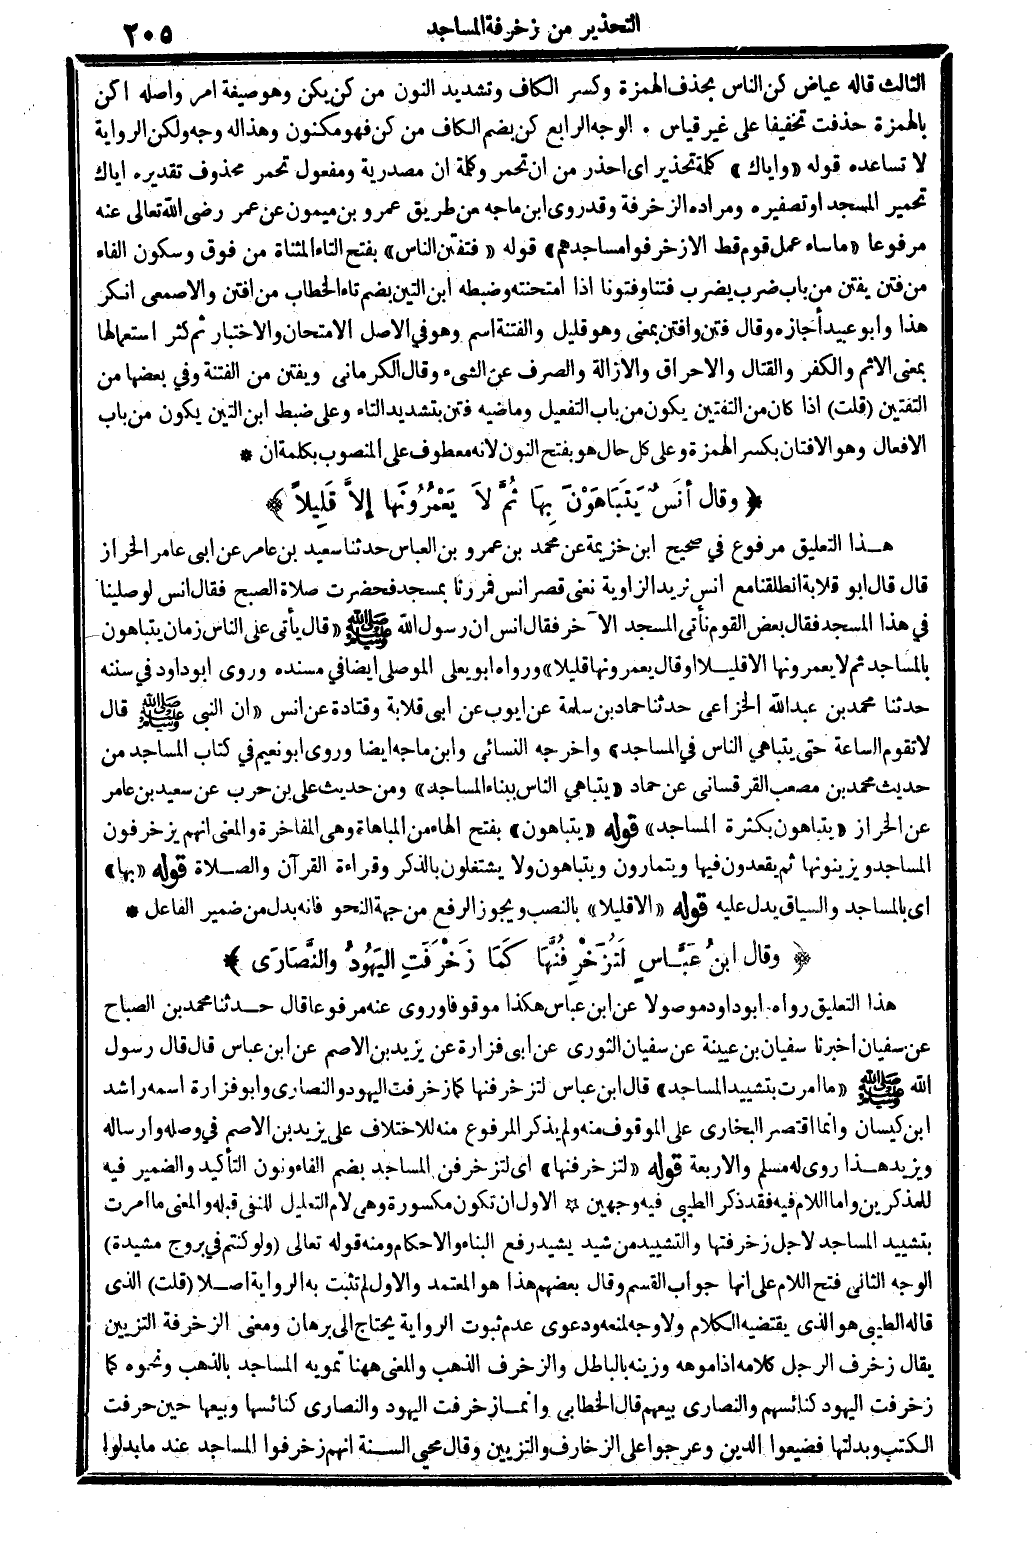 التحذير من زخرفة المساجد ٢٠٥
الثالث قاله عياض كن الناس بحذف الهمزة وكسر الكاف وتشديد النون من كن يكن وهو صيغة امر واصله اكن
بالهمزة حذفت تخفيفا على غير قياس . الوجه الرابع كن بضم الكاف من كن فهو مكنون وهذا له وجه ولكن الرواية
لا تساعده قوله «واياك» كلمة تحذير اى احذر من ان تحمر وكلمة ان مصدرية ومفعول تحمر محذوف تقديره اياك
تحمير المسجد او تصفيره ومراده الزخرفة وقد روى ابن ماجه من طريق عمرو بن ميمون عن عمر رضى الله تعالى عنه
مرفوعا «ما ساء عمل قوم قط الا زخرفوا مساجدهم» قوله «فتفتن الناس» بفتح التاء المثناة من فوق وسكون الفاء
من فتن يفتن من باب ضرب يضرب فتنا وفتونا اذا امتحنته وضبطه ابن التين بضم تاء الخطاب من افتن والاصمعى انكر
هذا وابو عبيد أجازه وقال فتن وافتن بمعنى وهو قليل والفتنة اسم وهو في الاصل الامتحان والاختبار ثم كثر استعمالها
بمعنى الاثم والكفر والقتال والاحراق والازالة والصرف عن الشىء وقال الكرمانى ويفتن من الفتنة وفي بعضها من
التفتين (قلت) اذا كان من التفتين يكون من باب التفعيل وماضيه فتن بتشديد التاء وعلى ضبط ابن التين يكون من باب
الافعال وهو الافتان بكسر الهمزة وعلى كل حال هو بفتح النون لانه معطوف على المنصوب بكلمة ان *
﴿ وقال أنَسٌ يَتَبَاهَوْنَ بِهَا ثُمَّ لاَ يَعْمُرُونَها إلاَّ قَلِيلاً ﴾
هـذا التعليق مرفوع في صحيح ابن خزيمة عن محمد بن عمرو بن العباس حدثنا سعيد بن عامر عن ابى عامر الخراز
قال قال ابو قلابة انطلقنا مع انس نريد الزاوية نعنى قصر انس فررنا بمسجد فحضرت صلاة الصبح فقال انس لو صلينا
في هذا المسجد فقال بعض القوم نأتى المسجد الآخر فقال انس ان رسول الله ﷺ «قال يأتى على الناس زمان يتباهون
بالمساجد ثم لا يعمرونها الا قليـلا او قال يعمرونها قليلا» ورواه ابو يعلى الموصلى ايضا في مسنده وروى ابو داود في سننه
حدثنا محمد بن عبد الله الخزاعى حدثنا حماد بن سلمة عن ايوب عن ابى قلابة وقتادة عن انس «ان النبى ﷺ قال
لا تقوم الساعة حتى يتباهي الناس في المساجد» واخرجه النسائى وابن ماجه ايضا وروى ابو نعيم في كتاب المساجد من
حديث محمد بن مصعب القرقسانى عن حماد «يتباهي الناس ببناء المساجد» ومن حديث على بن حرب عن سعيد بن عامر
عن الخراز «يتباهون بكثرة المساجد» قوله «يتباهون» بفتح الهاء من المباهاة وهى المفاخرة والمعنى انهم يزخرفون
المساجد ويزينونها ثم يقعدون فيها ويتمارون ويتباهون ولا يشتغلون بالذكر وقراءة القرآن والصـلاة قوله «بها»
اى بالمساجد والسياق يدل عليه قوله «الا قليلا» بالنصب ويجوز الرفع من جهة النحو فانه بدل من ضمير الفاعل *
﴿ وقال ابنُ عَبَّـاسٍ لَتُزَخْرِفُنَّهَا كَمَا زَخْرَفَتِ اليَهُودُ والنَّصَارَى ﴾
هذا التعليق رواه ابو داود موصولا عن ابن عباس هكذا موقوفا وروى عنه مرفوعا قال حـدثنا محمد بن الصباح
عن سفيان اخبرنا سفيان بن عيينة عن سفيان الثورى عن ابى فزارة عن يزيد بن الاصم عن ابن عباس قال قال رسول
الله ﷺ «ما امرت بتشييد المساجد» قال ابن عباس لتزخرفنها كما زخرفت اليهود والنصارى وابو فزارة اسمه راشد
ابن كيسان وانما اقتصر البخارى على الموقوف منه ولم يذكر المرفوع منه للاختلاف على يزيد بن الاصم في وصله وارساله
ويزيد هـذا روى له مسلم والاربعة قوله «لتزخرفنها» اى لتزخرفن المساجد بضم الفاء ونون التأكيد والضمير فيه
للمذكرين واما اللام فيه فقد ذكر الطيبى فيه وجهين ☆ الاول ان تكون مكسورة وهى لام التعليل للنفى قبله والمعنى ما امرت
بتشييد المساجد لاجل زخرفتها والتشييد من شيد يشيد رفع البناء والاحكام ومنه قوله تعالى (ولو كنتم في بروج مشيدة)
الوجه الثانى فتح اللام على انها جواب القسم وقال بعضهم هذا هو المعتمد والاول لم تثبت به الرواية اصـلا (قلت) الذى
قاله الطيبى هو الذى يقتضيه الكلام ولا وجه لمنعه ودعوى عدم ثبوت الرواية يحتاج الى برهان ومعنى الزخرفة التزيين
يقال زخرف الرجل كلامه اذا موهه وزينه بالباطل والزخرف الذهب والمعنى ههنا تمويه المساجد بالذهب ونحوه كما
زخرفت اليهود كنائسهم والنصارى بيعهم قال الخطابى وانمـا زخرفت اليهود والنصارى كنائسها وبيعها حين حرفت
الكتب وبدلتها فضيعوا الدين وعرجوا على الزخارف والتزيين وقال محيى السـنة انهم زخرفوا المساجد عند ما بدلوا